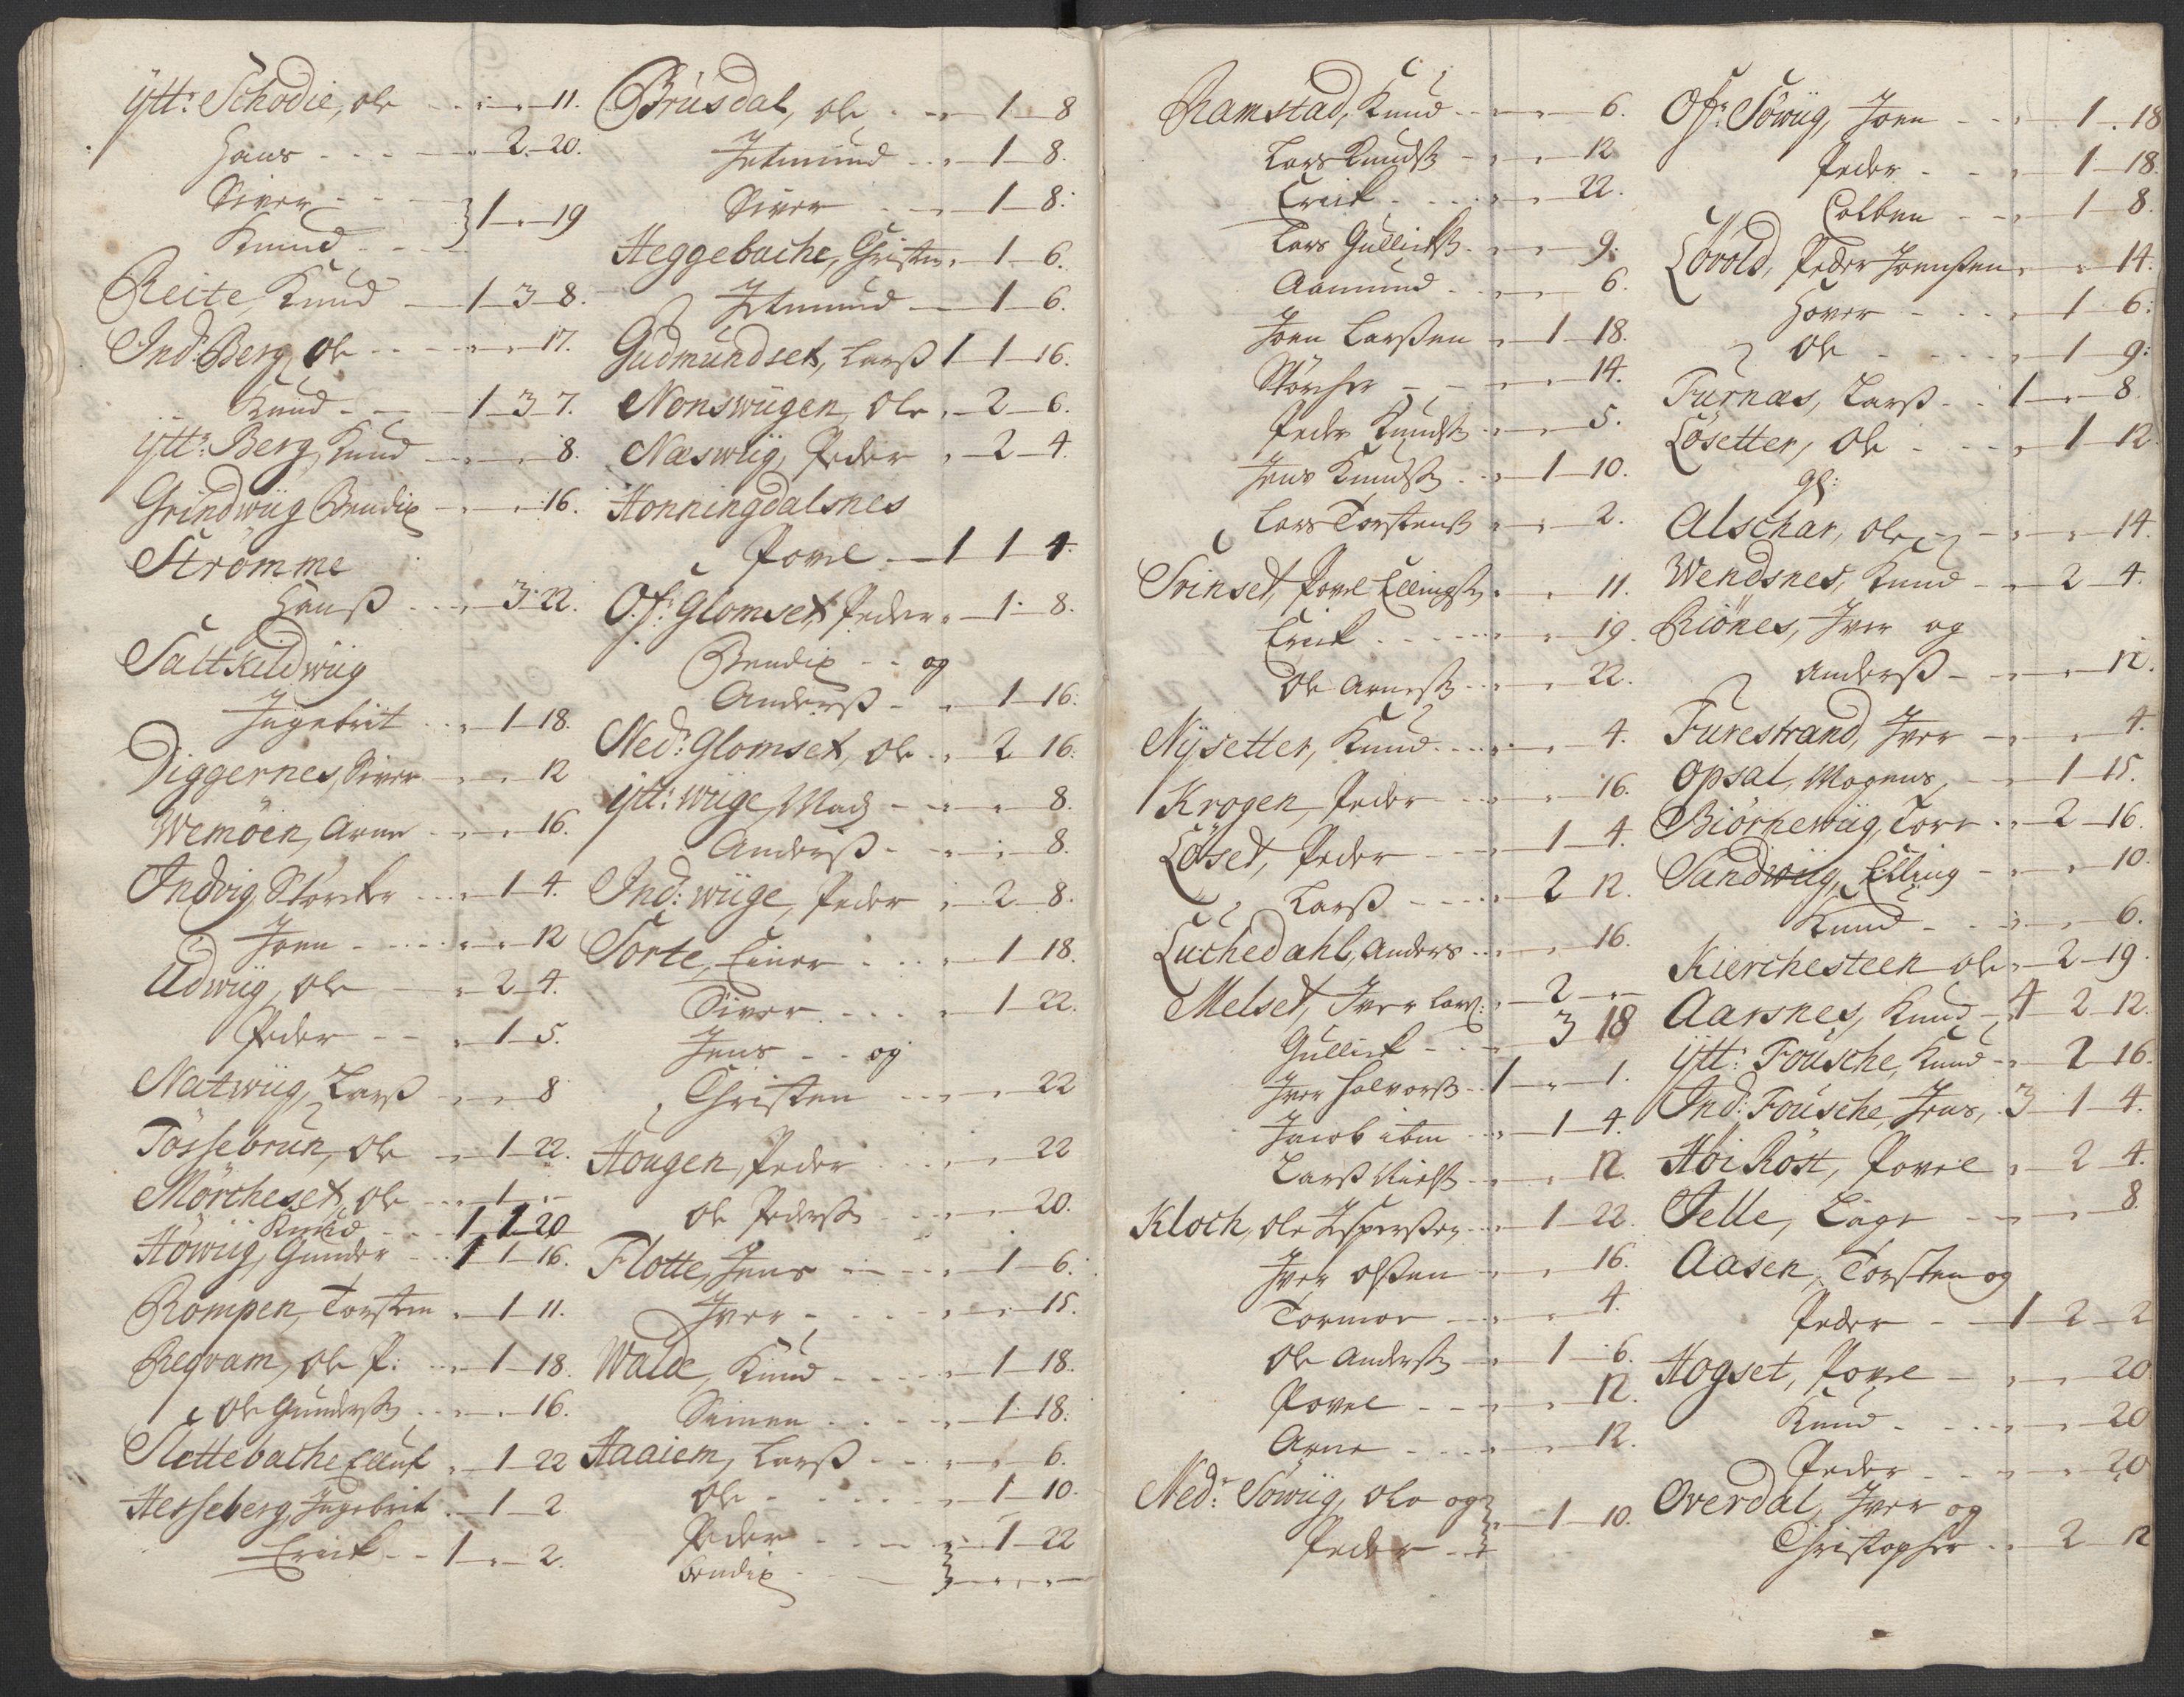 Ytt: Schodie, Ole - - " - " - 11.
Hans - - - " - 2 - 20.
Siver - -
Knud - - } 1 - " - 19
Reite, Knud - 1 - 3 - 8.
Ind: Berg, Ole - - " - " - 17.
Knud - - 1 - 3 - 7.
Ytt: Berg, Knud - " - " - 8.
Grindwiig Bendix - " - " - 16.
Strömme
Hanß - - " - 3 - 22.
Saltkildwiig
Ingebrit - - " - 1 - 18.
Diggernes, Siver - " - " - 12
Wemöen, Arne - " - " - 16.
Indvig, Storcker - " - 1 - 4.
Joen - - - " - " - 12
Udwiig, Ole - " - 2 - 4.
Peder - - " - 1 - 5.
Natwiig, Larß - " - " - 8
Tössebrun, Ole - " - 1 - 22.
Mörcheset, Ole - " - 1 - " -
Knud - - 1 - 1 - 20
Höwiig, Gunder - - 1 - 1 - 16.
Rompen, Torsten " - 1 - 11.
Reqvam, Ole P: - " - 1 - 18.
Ole Gunderß. - " - " - 16.
Slettebache Elluf " - 1 - 22
Hesseberg, Ingebrit - " - 1 - 2
Erich - - 1 - " - 2.
Brüsdal, Ole - - " - 1 - 8
Jetmund - " - 1 - 8.
Siver - - " - 1 - 8.
Heggebache, Christen " - 1 - 6.
Jetmund - " - 1 - 6.
Gudmundset, Larß 1 - 1 - 16.
Nonswiigen, Ole " - 2 - 6.
Næswiig, Peder " - 2 - 4.
Honningdalsnes
Povel - 1 1 4.
Ofr: Glomset, Peder " - 1 - 8.
Bendix - - og
Anderß - " - 1 - 16.
Ned: Glomset, Ole " - 2 - 16.
Ytt: wiige, Mads - " - " - 8.
Anderß - " - " - 8.
Ind: wiige, Peder " - 2 - 8.
Sorte, Einer - - " - 1 - 18.
Siver - - - " - 1 - 22.
Jens - - og
Christen - " - " - 22
Hougen, Peder - " - " - 22
Ole Pederß. - " - " - 20.
Flotte, Jens - " - 1 - 6.
Iver - - - " - " - 15.
Walde, Knud - - " - 1 - 18.
Simen - - " - 1 - 18.
Haaiem, Larß - - " - " - 6.
Ole - - - " - 1 - 10.
Peder - - - " - 1 - 22
Bendix - - - } " - " - " -
Ramstad, Knud - - " - " - 6.
Lars Knudß. - " - " - 12
Erich - - - " - " - 22.
Lars Gullichß. - " - " - 9.
Aamund - " - " - 6.
Joen Larßen " - 1 - 18.
Storcher - - " - " - 14.
Peder Knudß. " - " - 5.
Jens Knudß. - " - 1 - 10.
Lars Torstenß " - " - 2.
Svinset, Povel Ellingß. " - " 11.
Erich - - - " - " - 19.
Ole Arneß. - " - " - 22.
Nysetter, Knud - - " - " - 4.
Krogen, Peder - - " - " - 16.
Löset, Peder - - " - 1 - 4.
Larß - - - " - 2 - 12.
Luchedahl, Anders - " - " - 16.
Melset, Iver Larß. " - 2 - " -
Gullich - - " 3 18
Iver Halvorß. - 1 - " - 1.
Jacob ibm - " - 1 - 4.
Larß Nielß. - " - " - 12.
Kloch, Ole Jesperßen - " - 1 - 22.
Iver Olßen - " - " - 16.
Tormoe - " - " - 4.
Ole Anderß. - " - 1 - 6.
Povel - - " - " - 12.
Arne - - - " - " - 12.
Ned: Söwiig, Ole og
Peder - - } " - 1 - 10.
Ofr: Söwiig, Joen - - " - 1 - 18
Peder - - " - 1 - 18.
Colben - - " - 1 - 8.
Lövold, Peder Joenßen " - " - 14.
Haver - - " - 1 - 6.
Ole - - - " - 1 - 9.
Furnæs, Larß - - 1 - " - 8.
Lösetter, Ole - - " - 1 - 12.
Alschar, Ole - " - " - 14.
Wendsnes, Knud - " - 2 - 4.
Riönes, Iver og
Anderß - " - " - 12.
Furestrand, Iver - " - " - 4.
Opsal, Mogens, - " - 1 - 15.
Biörnewiig, Tore - " - 2 - 16.
Sandwiig, Elling - " - " - 10.
Knud - - " - " - 6.
Kierchesteen Ole " - 2 - 19.
Aarsnes, Knud - 4 - 2 - 12.
Ytt: Fousche, Knud - " - 2 - 16.
Ind: Fousche, Jens, 3 - 1 - 4.
Höi Röst, Povel " - 2 - 4.
Jelle, Lage - " - " - 8.
Aasen, Torsten og
Peder - - 1 - 2 - 2
Hogset, Povel - " - " - 20
Knud - - " - " - 20
Peder - - " - " - 20
Overdal, Iver og
Christopher - " - 2 - 12